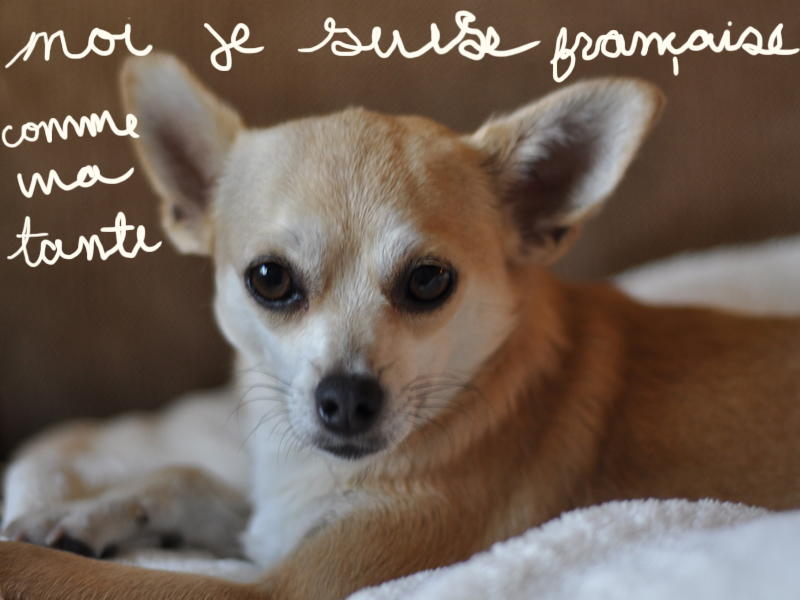 moi je suise française
comme
ma
tante